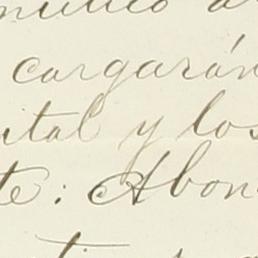 cargarán
ital y los
te: Abon